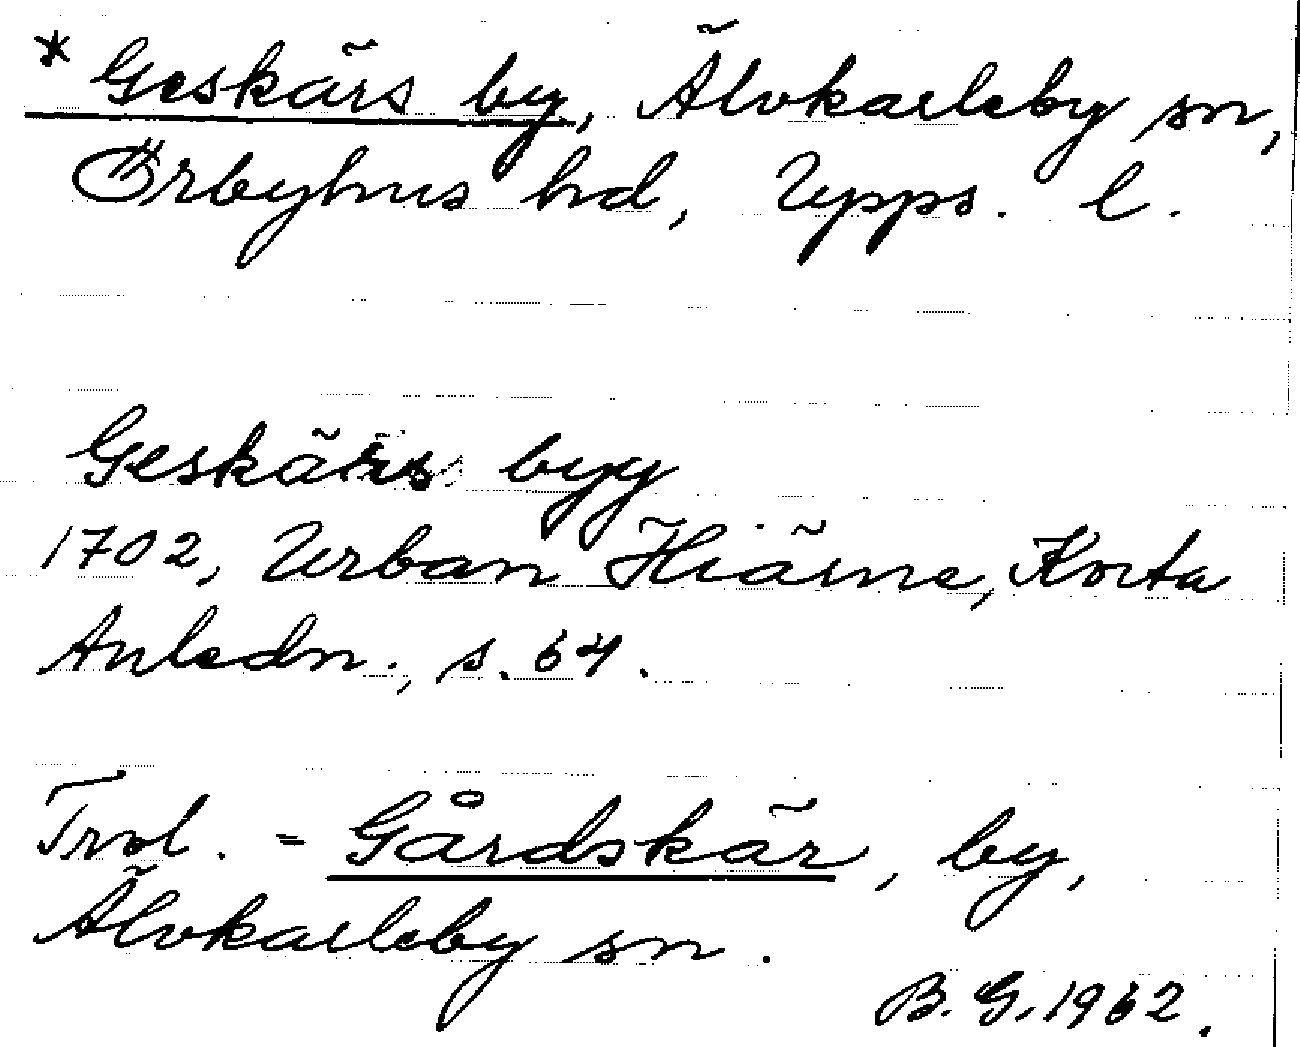 * Geskärs by, Älvkarleby sn,
Örbyhus hd, Upps. l.
Geskärs byy
1702, Urban Hiärne, Korta
Anledn., s. 64.
Trol. = Gårdskär, by,
Älvkarleby sn.
B. G. 1962.